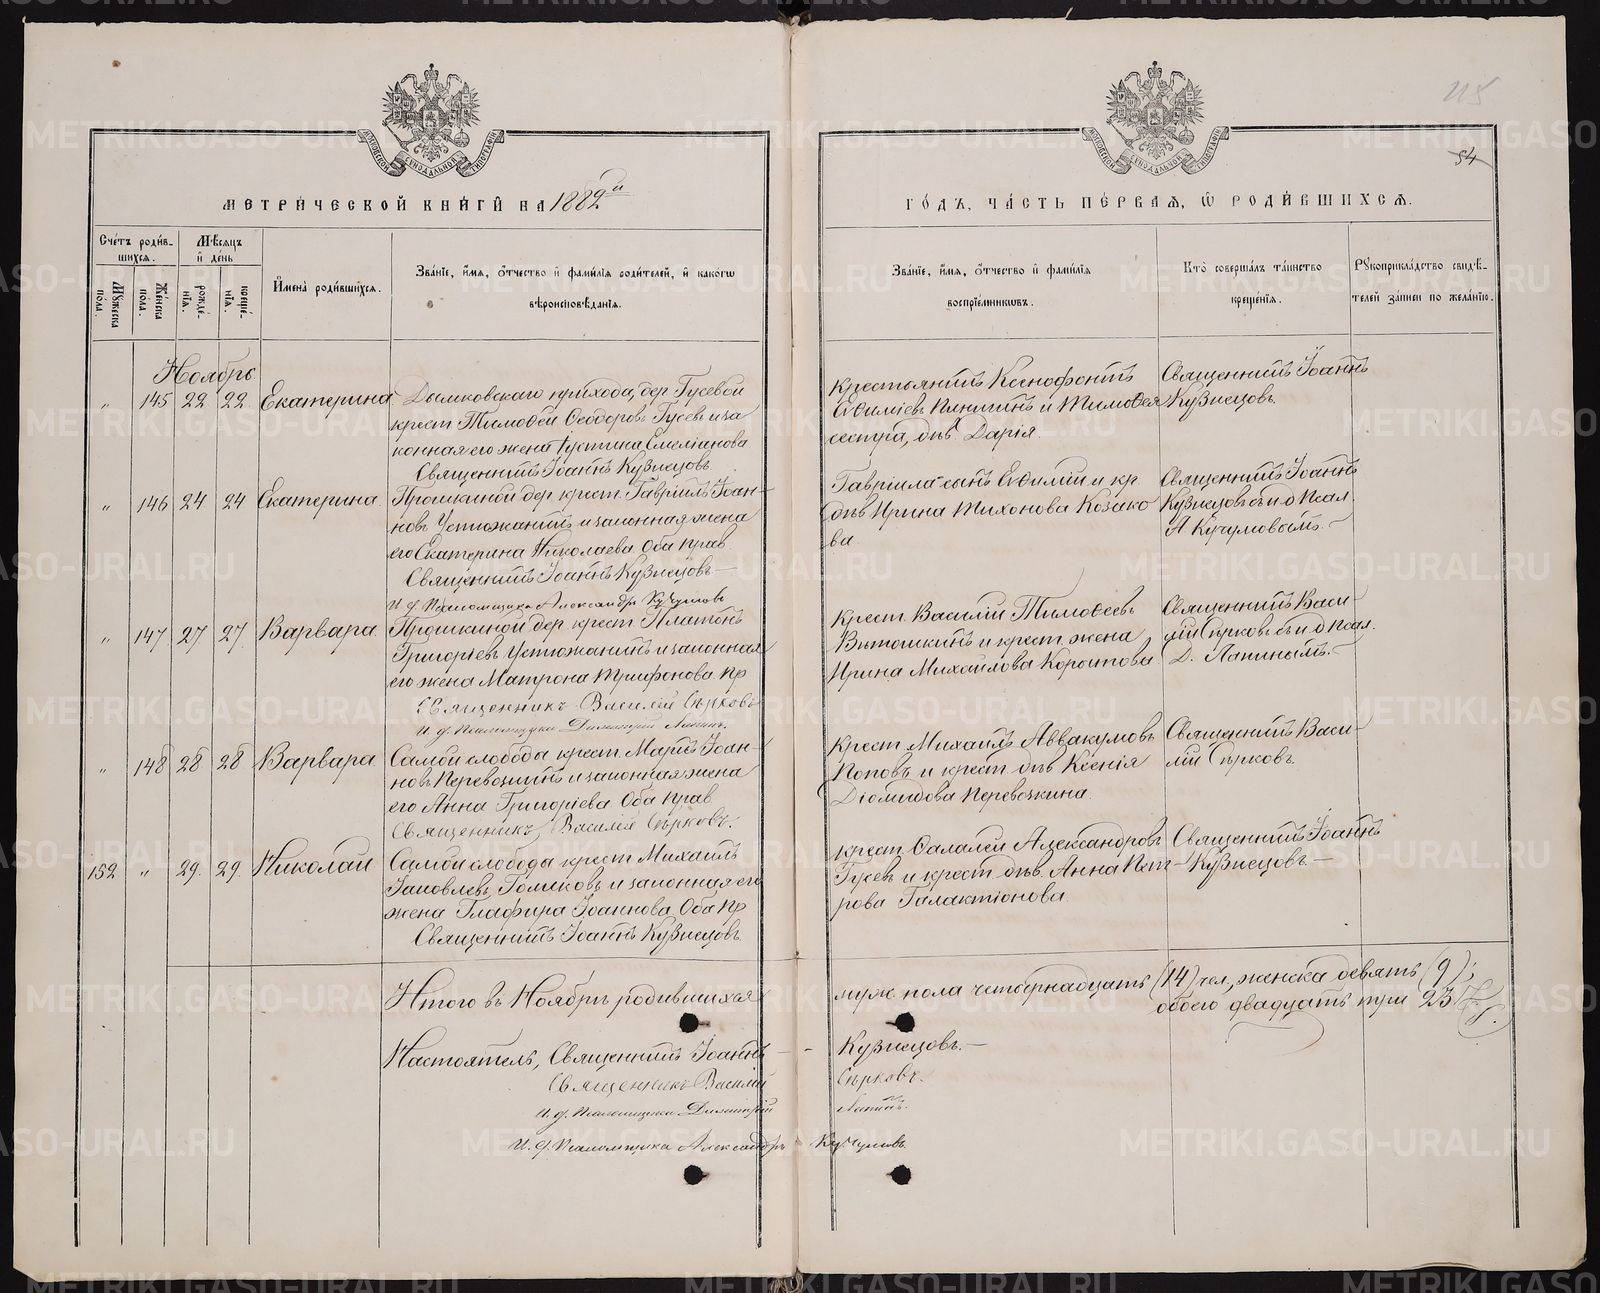 115
54
МЕТРИ́ЧЕСКОЙ КНИ́ГИ НА 1882й
ГО́ДЪ, ЧА́СТЬ ПЕ́РВАЯ, Ѡ РОДИ́ВШИХСЯ.
Сче́тъ роди́в-
шихся.
Му́жеска по́ла.
Же́нска по́ла.
Мѣ́сяцъ
и де́нь
рожде́-
нія.
креще́-
нія.
Имена̀ роди́вшихся.
Зва́ніе, и́мя, о́тчество и фами́лія роди́телей, и како́гѡ
вѣроисповѣ́данія.
Зва́ніе, и́мя, о́тчество и фами́лія
воспріе́мниковъ.
Кто̀ соверша́лъ та́инство
креще́нія.
Рукоприкла́дство свидѣ́-
телей за́писи по жела́нію.
Ноябрь
„ 145 22 22 Екатерина
Дымковскаго прихода, дер Гусевой
крест Тимоѳей Ѳеодоровъ Гусевъ и за
конная его жена Іустина Емеліанова
Священникъ Іоаннъ Кузнецовъ
Крестьянинъ Ксенофонтъ
Евфиміевъ и Тимоѳея
сестра, дѣв. Дарія.
Священникъ Іоаннъ
Кузнецовъ
„ 146 24 24 Екатерина
Прошкиной дер крест. Гавріилъ Іоан-
новъ Устюжанинъ и законная жена
его Екатерина Николаева. Оба прав.
Священникъ Іоаннъ Кузнецовъ
И. д. Псаломщика Александръ Кучумовъ
Гавріила сынъ Евфимій и кр
дѣв Ирина Тихонова Козако
ва
Священникъ Іоаннъ
Кузнецовъ съ и д Псал.
А Кучумовымъ.
„ 147 27 27 Варвара
Прошкиной дер крест Платонъ
Григоріевъ Устюжанинъ и законная
его жена Матрона Трифонова. пр
Священникъ Василій Сѣрковъ
И. д. Псаломщика Димитрій Лапинъ.
Крест Василій Тимоѳеевъ
и крест жена
Ирина Михайлова
Священникъ Васи-
лій Сѣрковъ съ и д Псал.
Д. Лапинымъ.
„ 148 28 28 Варвара
Самой слобода крест. Марнъ Іоан-
новъ Перевозкинъ и законная жена
его Анна Григоріева. Оба прав
Священникъ Василій Сѣрковъ.
Крест. Михаилъ Аввакумовъ
Поповъ и крест дѣв Ксенія
Діомидова Перевозкина.
Священникъ Васи-
лій Сѣрковъ
152 „ 29. 29. Николай
Самой слобода крест Михаилъ
Іаковлевъ Голиковъ и законная его
жена Глафира Іоаннова. Оба пр
Священникъ Іоаннъ Кузнецовъ
Крест. Александровъ
Гусевъ и крест дѣв. Анна Пет-
рова Галактіонова.
Священникъ Іоаннъ
Кузнецовъ
Итого въ Ноябрѣ родившихся
муж. пола четырнадцать (14) чел, женска девять (9);
обоего двадцать три 23
Настоятель, Священникъ Іоаннъ Кузнецовъ.
Священникъ Василій Сѣрковъ.
И. д. Псаломщика Димитрій Лапинъ.
И. д. Псаломщика Александръ Кучумовъ
METRIKI.GASO-URAL.RU